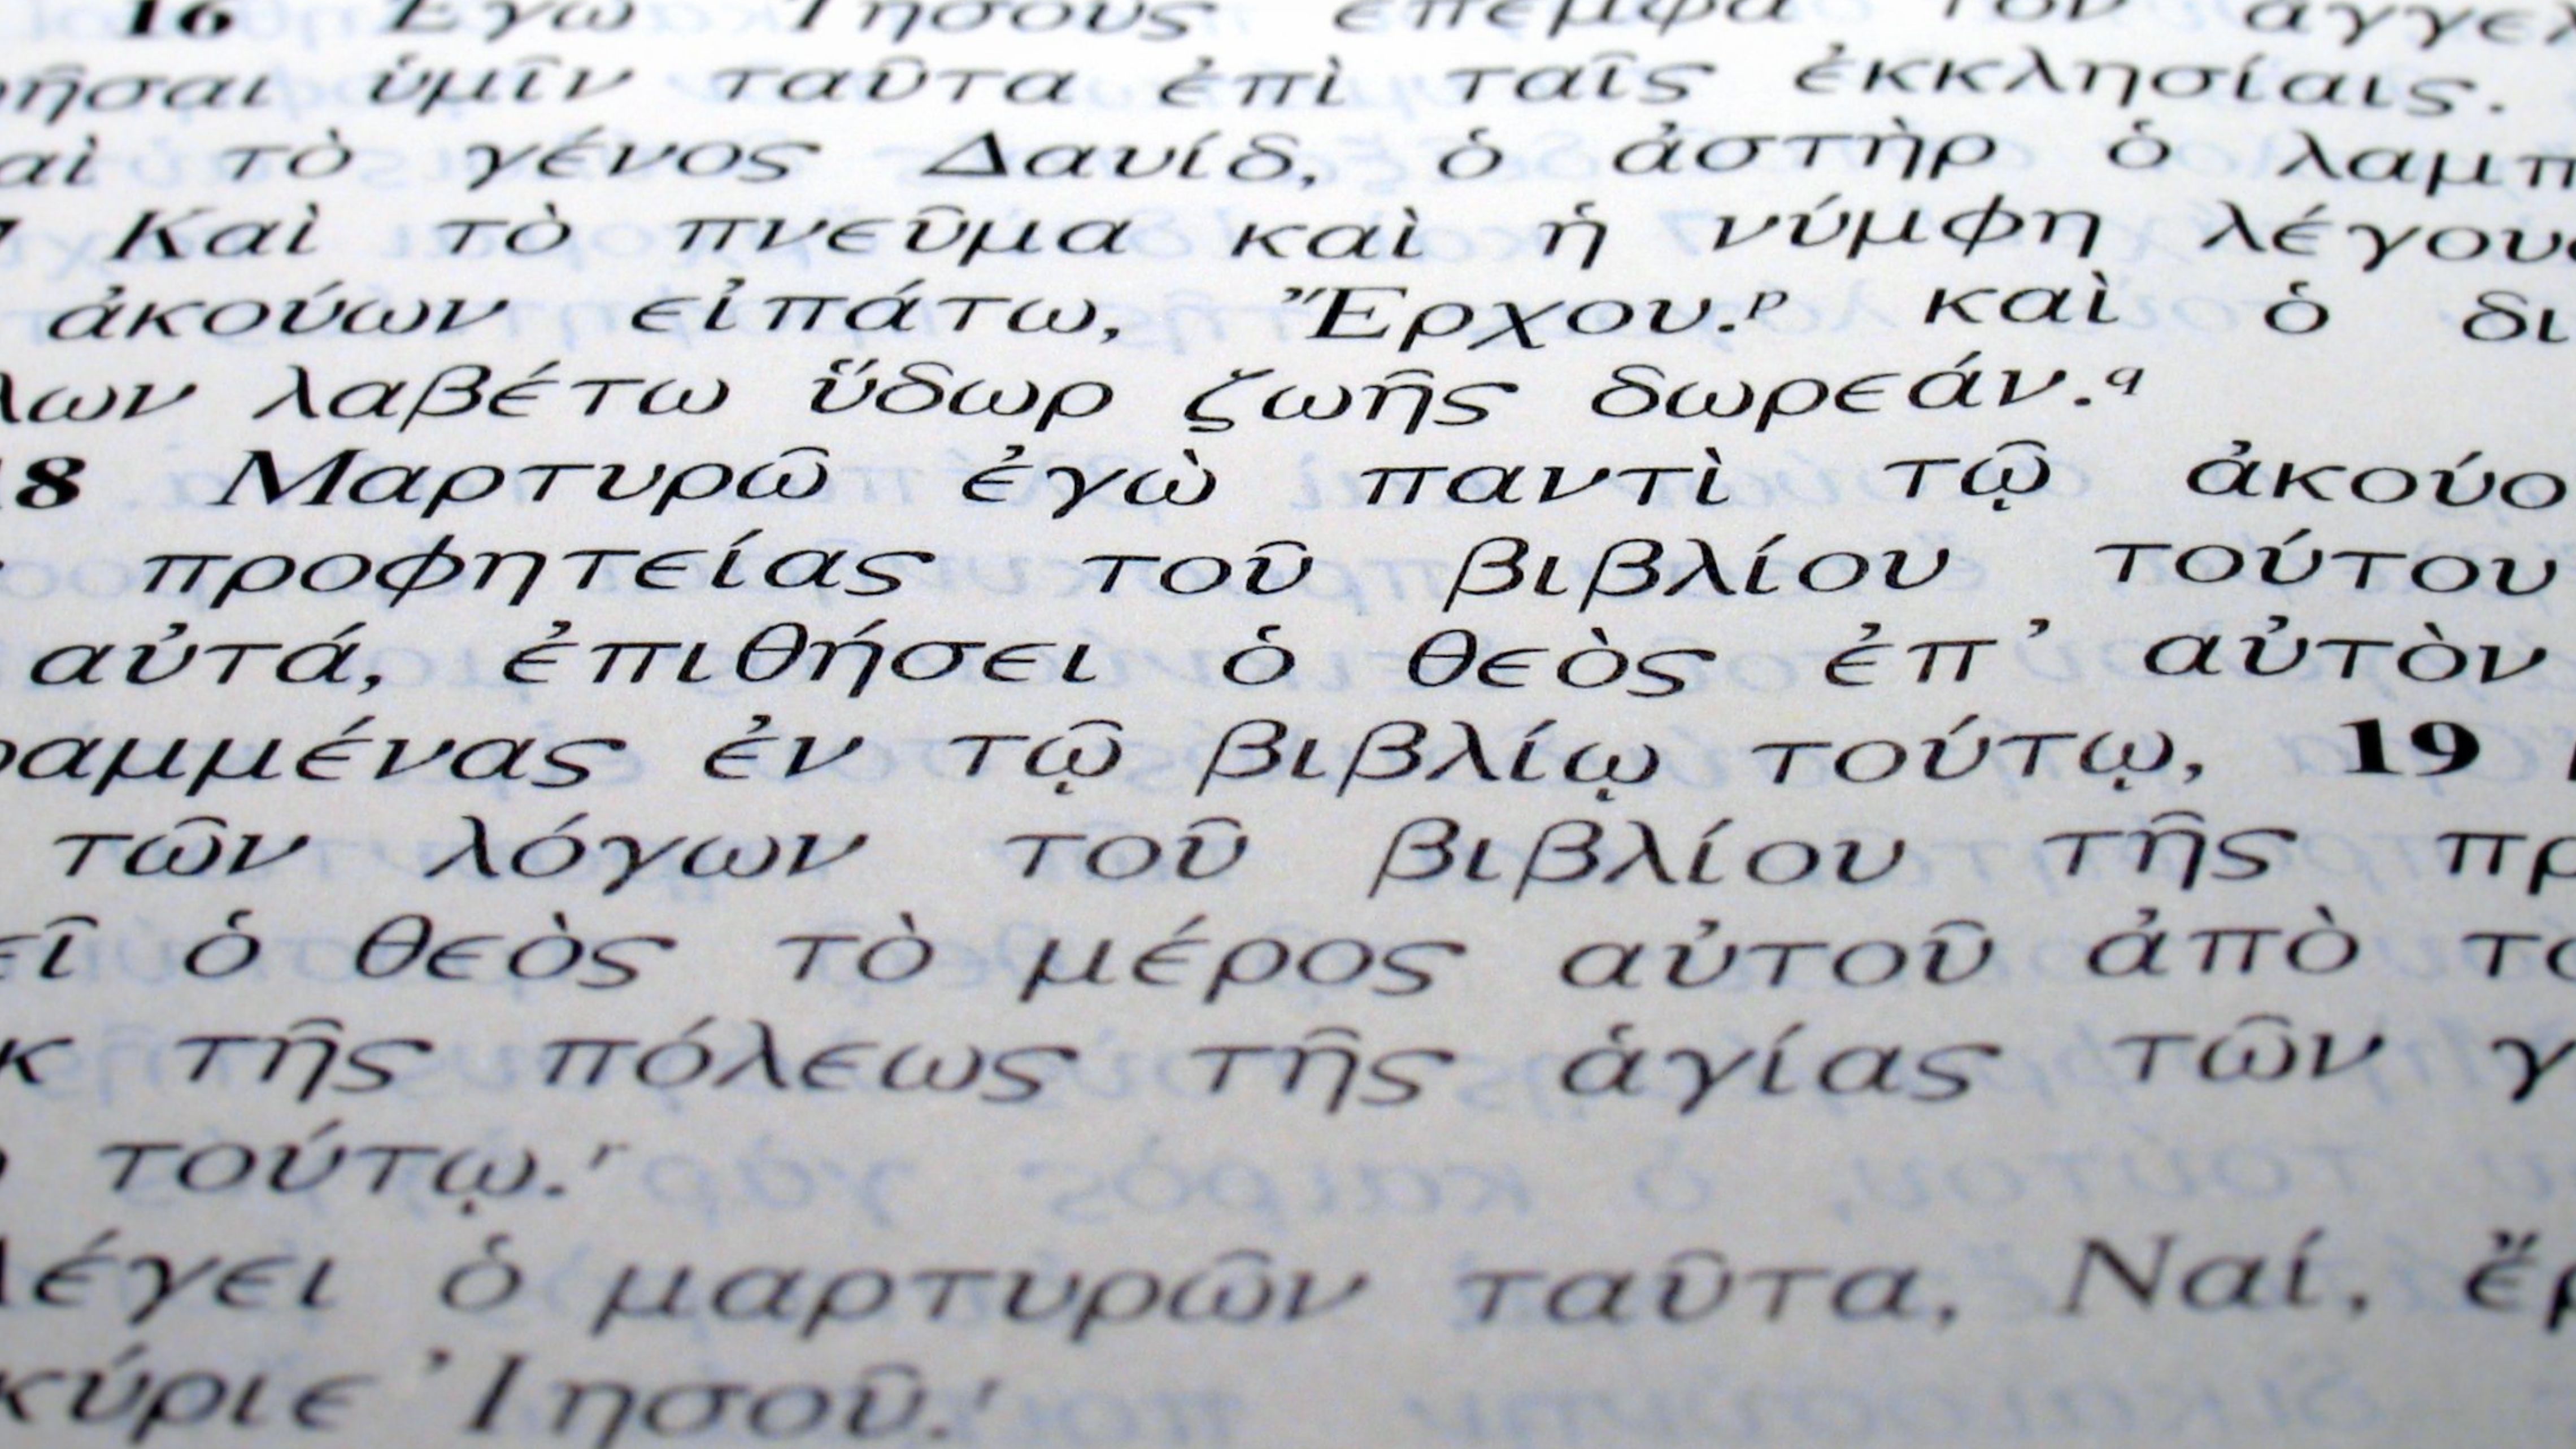 16 Ἐγὼ Ἰησοῦς ἔπεμψα τὸν ἄγγελ
ρῆσαι ὑμῖν ταῦτα ἐπὶ ταῖς ἐκκλησίαις.
αὶ τὸ γένος Δαυίδ, ὁ ἀστὴρ ὁ λαμπ
7 Καὶ τὸ πνεῦμα καὶ ἡ νύμφη λέγουσ
ἀκούων εἰπάτω, Ἔρχου.p καὶ ὁ δι
λων λαβέτω ὕδωρ ζωῆς δωρεάν.q
18 Μαρτυρῶ ἐγὼ παντὶ τῷ ἀκούο
προφητείας τοῦ βιβλίου τούτου
αὐτά, ἐπιθήσει ὁ θεὸς ἐπ᾽ αὐτὸν
ραμμένας ἐν τῷ βιβλίῳ τούτῳ, 19
τῶν λόγων τοῦ βιβλίου τῆς πρ
εῖ ὁ θεὸς τὸ μέρος αὐτοῦ ἀπὸ το
κ τῆς πόλεως τῆς ἁγίας τῶν γ
τούτῳ.r
λέγει ὁ μαρτυρῶν ταῦτα, Ναί, ἔρ
κύριε Ἰησοῦ.